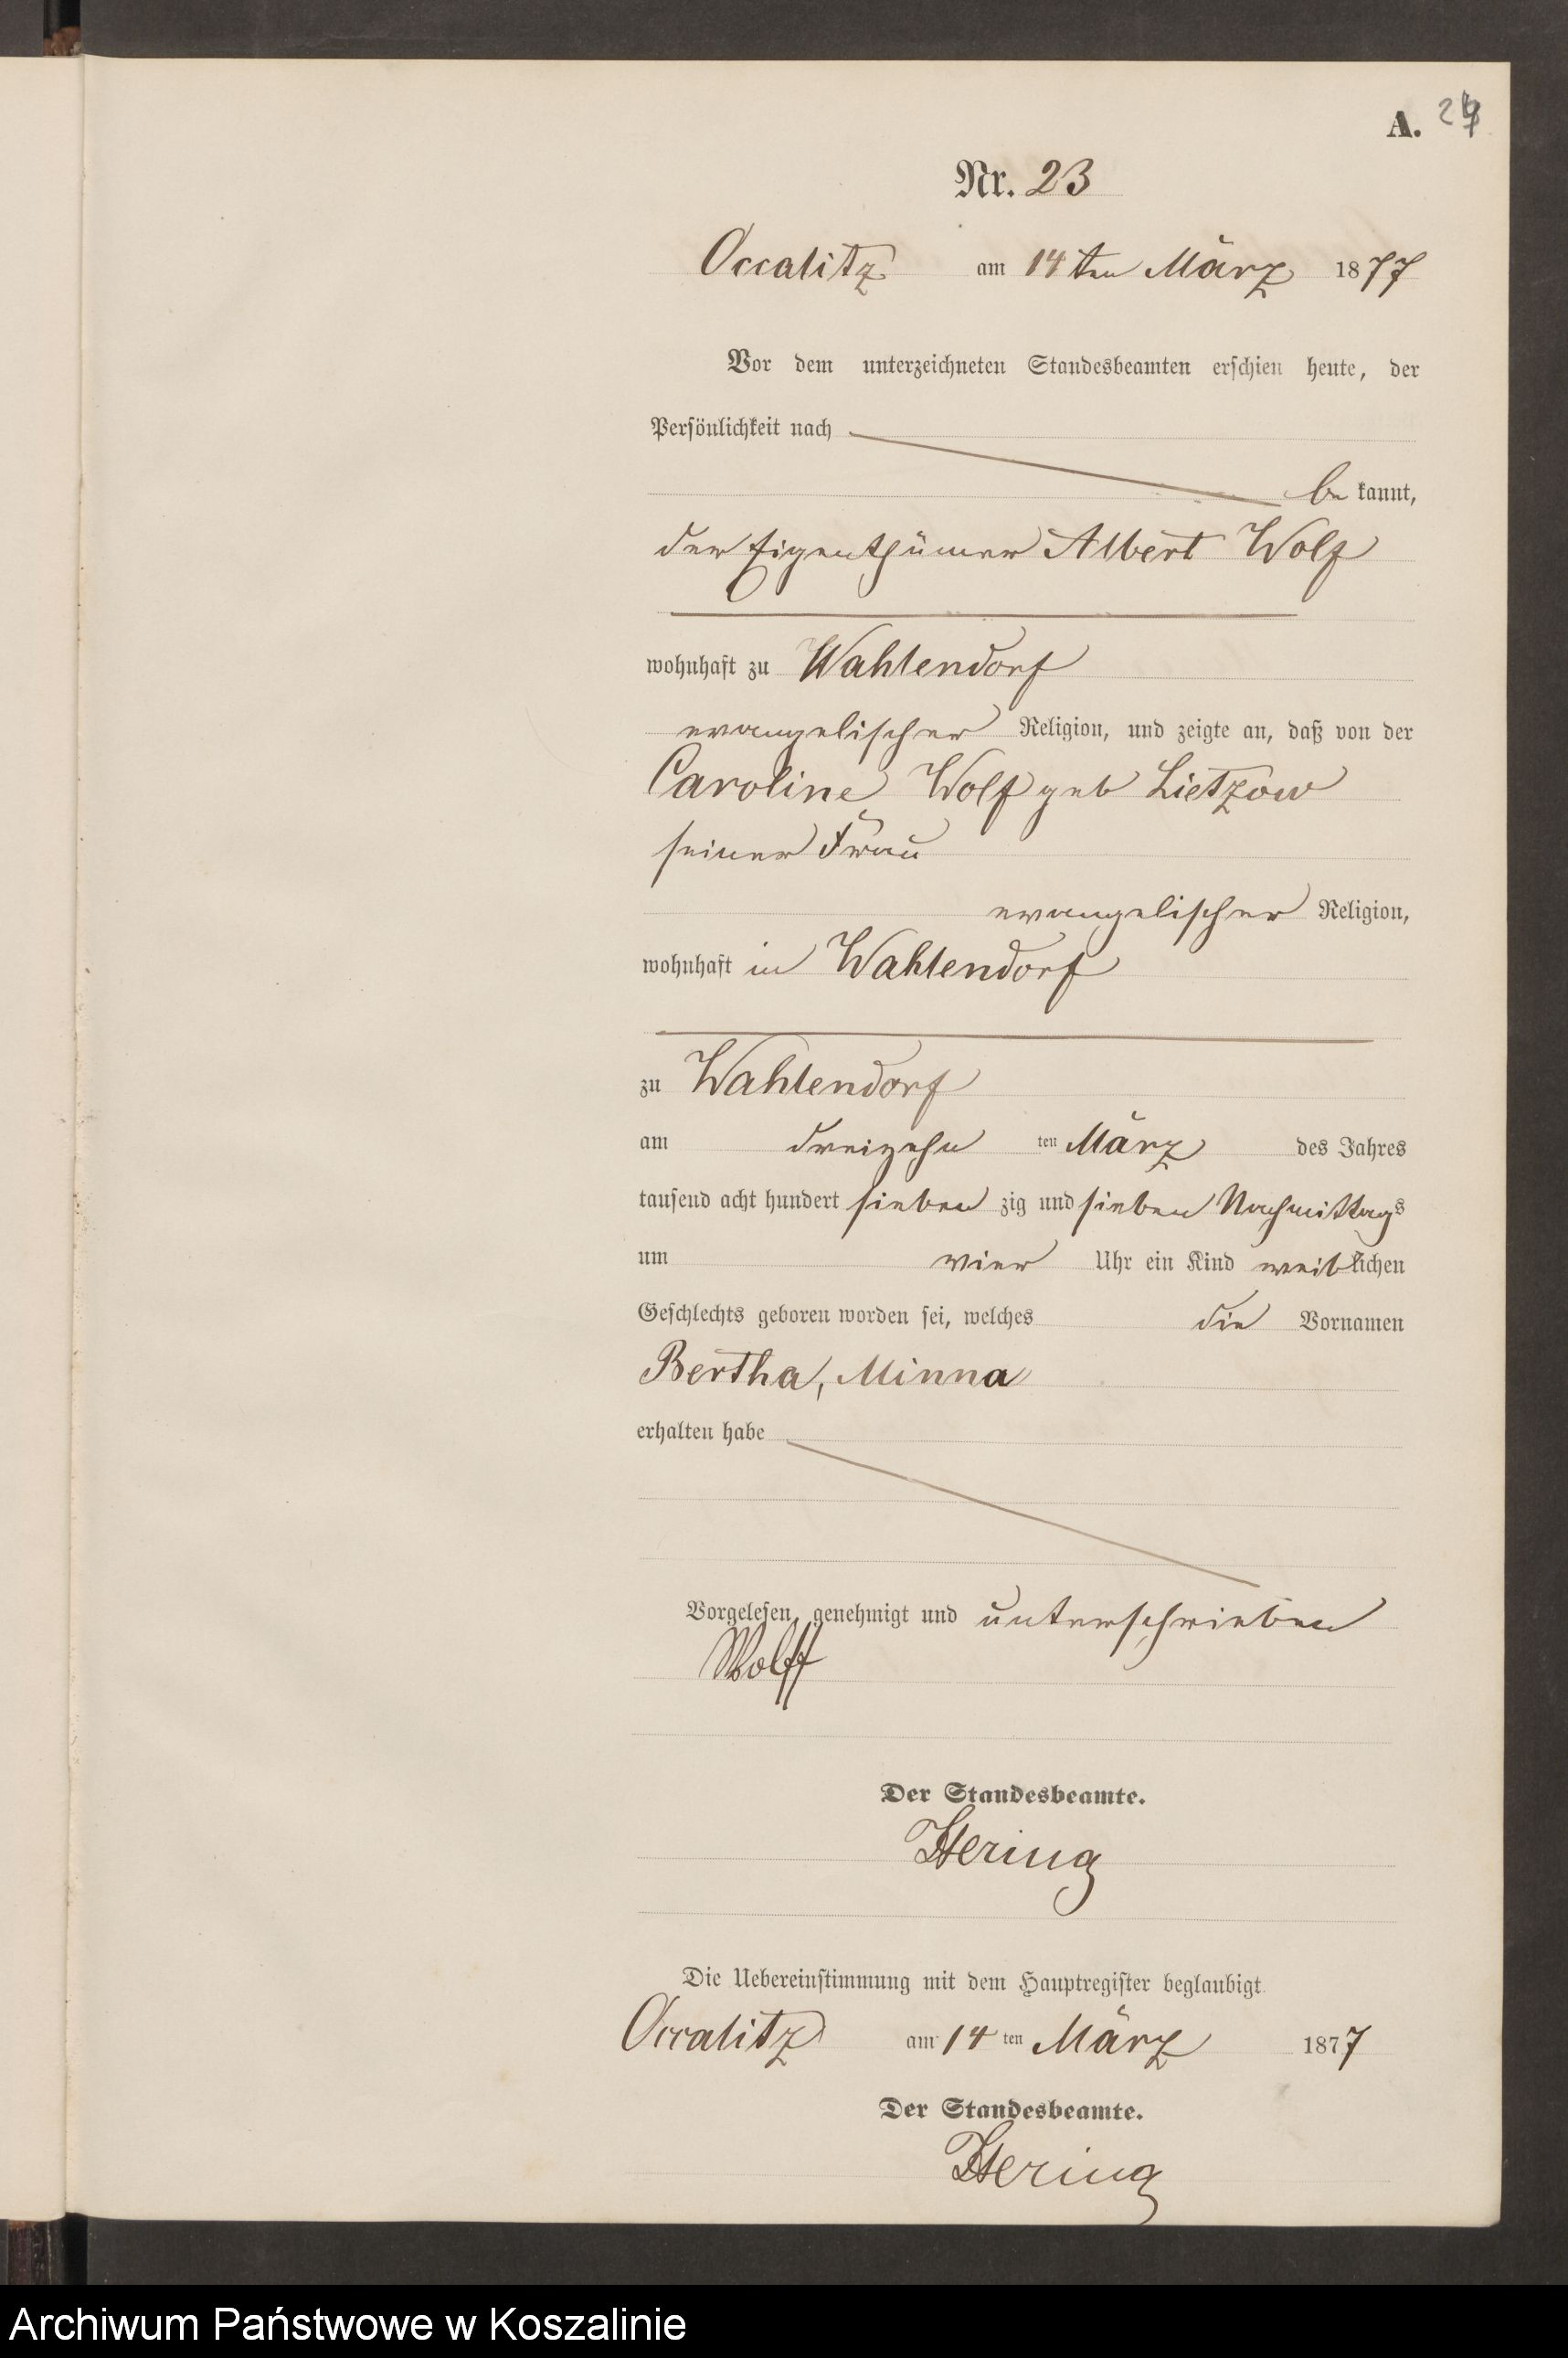 A.
Nr. 23
Occalitz am 14ten März 1877
Vor dem unterzeichneten Standesbeamten erschien heute, der
Persönlichkeit nach
be kannt,
der Eigenthümer Albert Wolf
wohnhaft zu Wahlendorf
evangelischer Religion, und zeigte an, daß von der
Caroline Wolf geb Lietzow
seiner Frau
evangelischer Religion,
wohnhaft in Wahlendorf
zu Wahlendorf
am dreizehn ten März des Jahres
tausend acht hundert sieben zig und sieben Nachmittags
um vier Uhr ein Kind weiblichen
Geschlechts geboren worden sei, welches die Vornamen
Bertha, Minna
erhalten habe
Vorgelesen, genehmigt und unterschrieben
Wolff
Der Standesbeamte.
Hering
Die Uebereinstimmung mit dem Hauptregister beglaubigt
Occalitz am 14 ten März 1877
Der Standesbeamte.
Hering
Archiwum Państwowe w Koszalinie